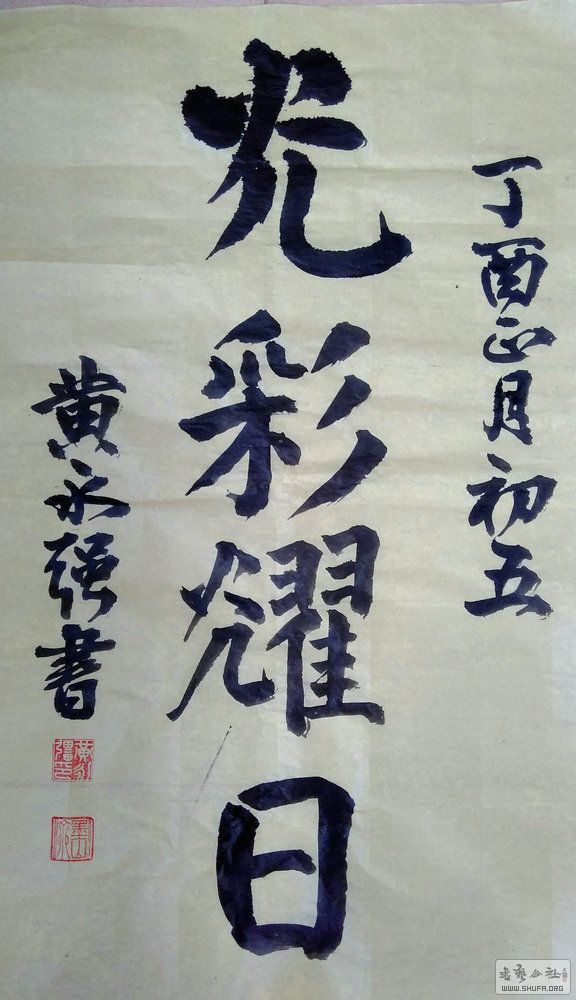 丁酉正月初五
光彩耀日
黄永强书
书艺公社
WWW.SHUFA.ORG